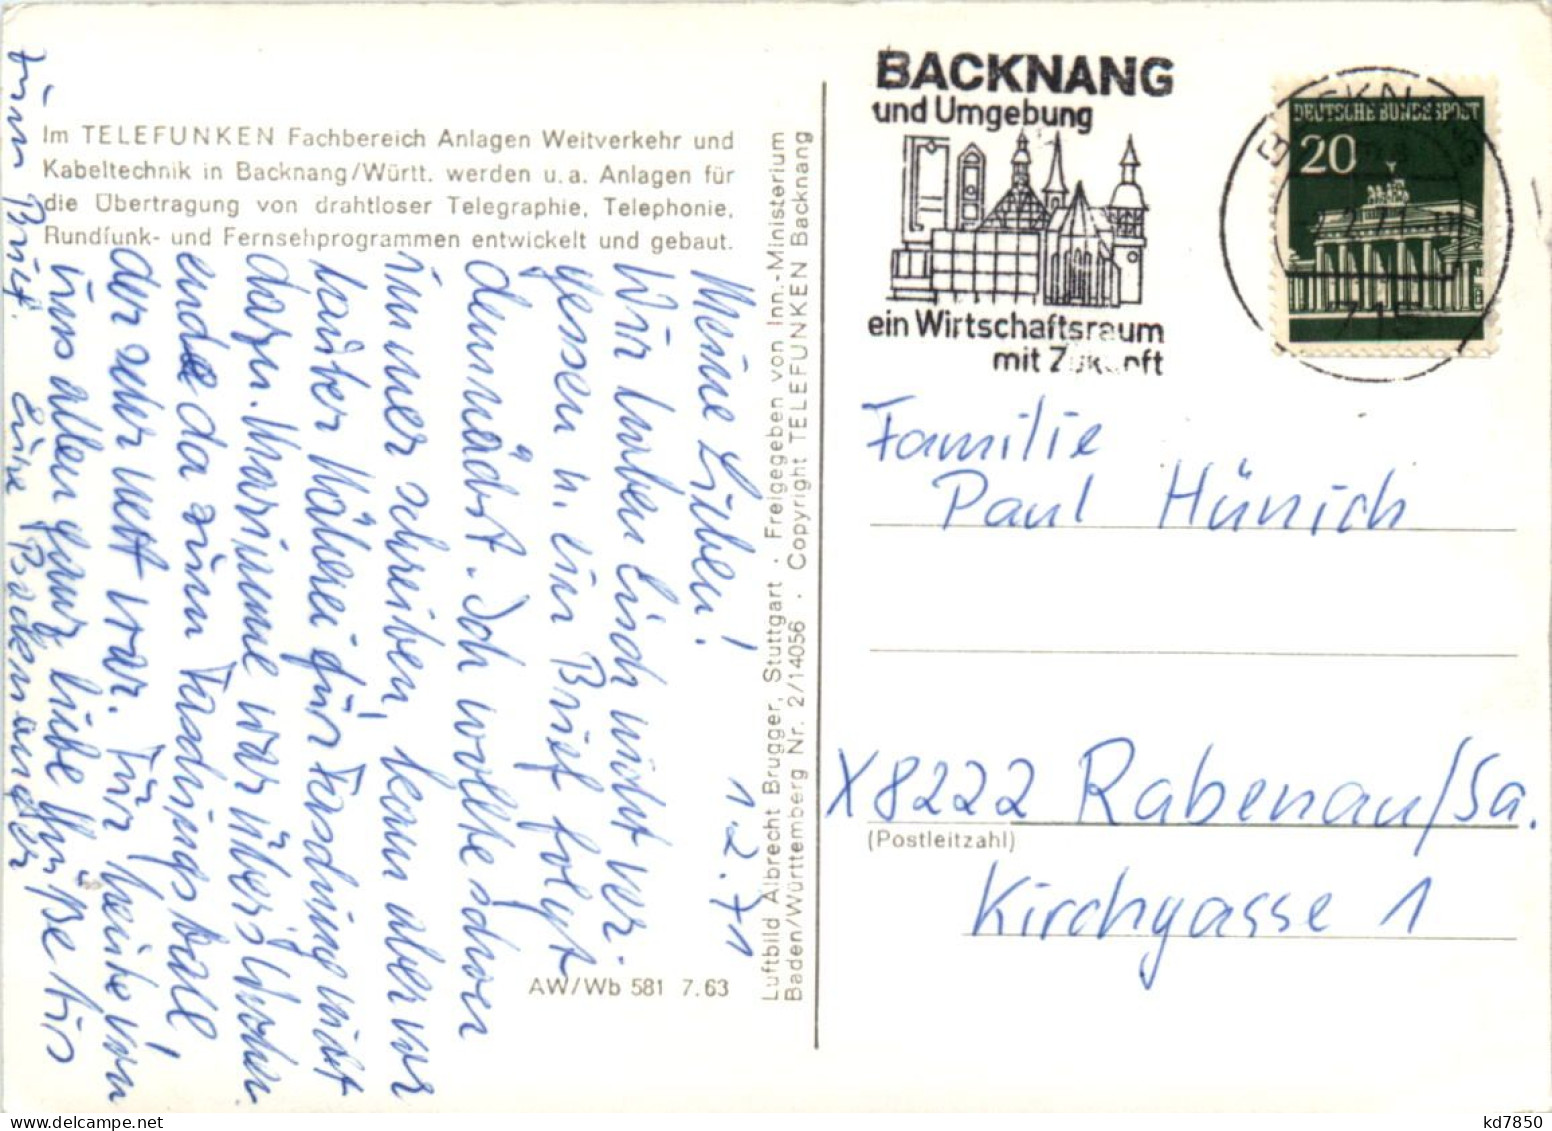 Im TELEFUNKEN Fachbereich Anlagen Weitverkehr und
Kabeltechnik in Backnang/Württ. werden u. a. Anlagen für
die Übertragung von drahtloser Telegraphie, Telephonie,
Rundfunk- und Fernsehprogrammen entwickelt und gebaut.
1.2.71
Meine Lieben!
Wir haben Eich nicht ver-
gessen u. ein Brief folgt
demnächst. Ich wollte schon
immer schreiben, kam aber vor
lauter Näherei für Fasching nicht
dazu. Marianne war übers Wochen
ende da zum Faschingsball,
der sehr nett war. Für heute von
uns allen ganz liebe Grüße bis
zum Brief. Eure Backnanger
AW/Wb 581 7.63
Luftbild Albrecht Brugger, Stuttgart · Freigegeben von Inn.-Ministerium
Baden/Württemberg Nr. 2/14056 · Copyright TELEFUNKEN Backnang
BACKNANG
und Umgebung
ein Wirtschaftsraum
mit Zukunft
DEUTSCHE BUNDESPOST
20
BACKNANG
2.71
715
Familie
Paul Hünich
X8222 Rabenau/Sa.
(Postleitzahl)
Kirchgasse 1
kd7850